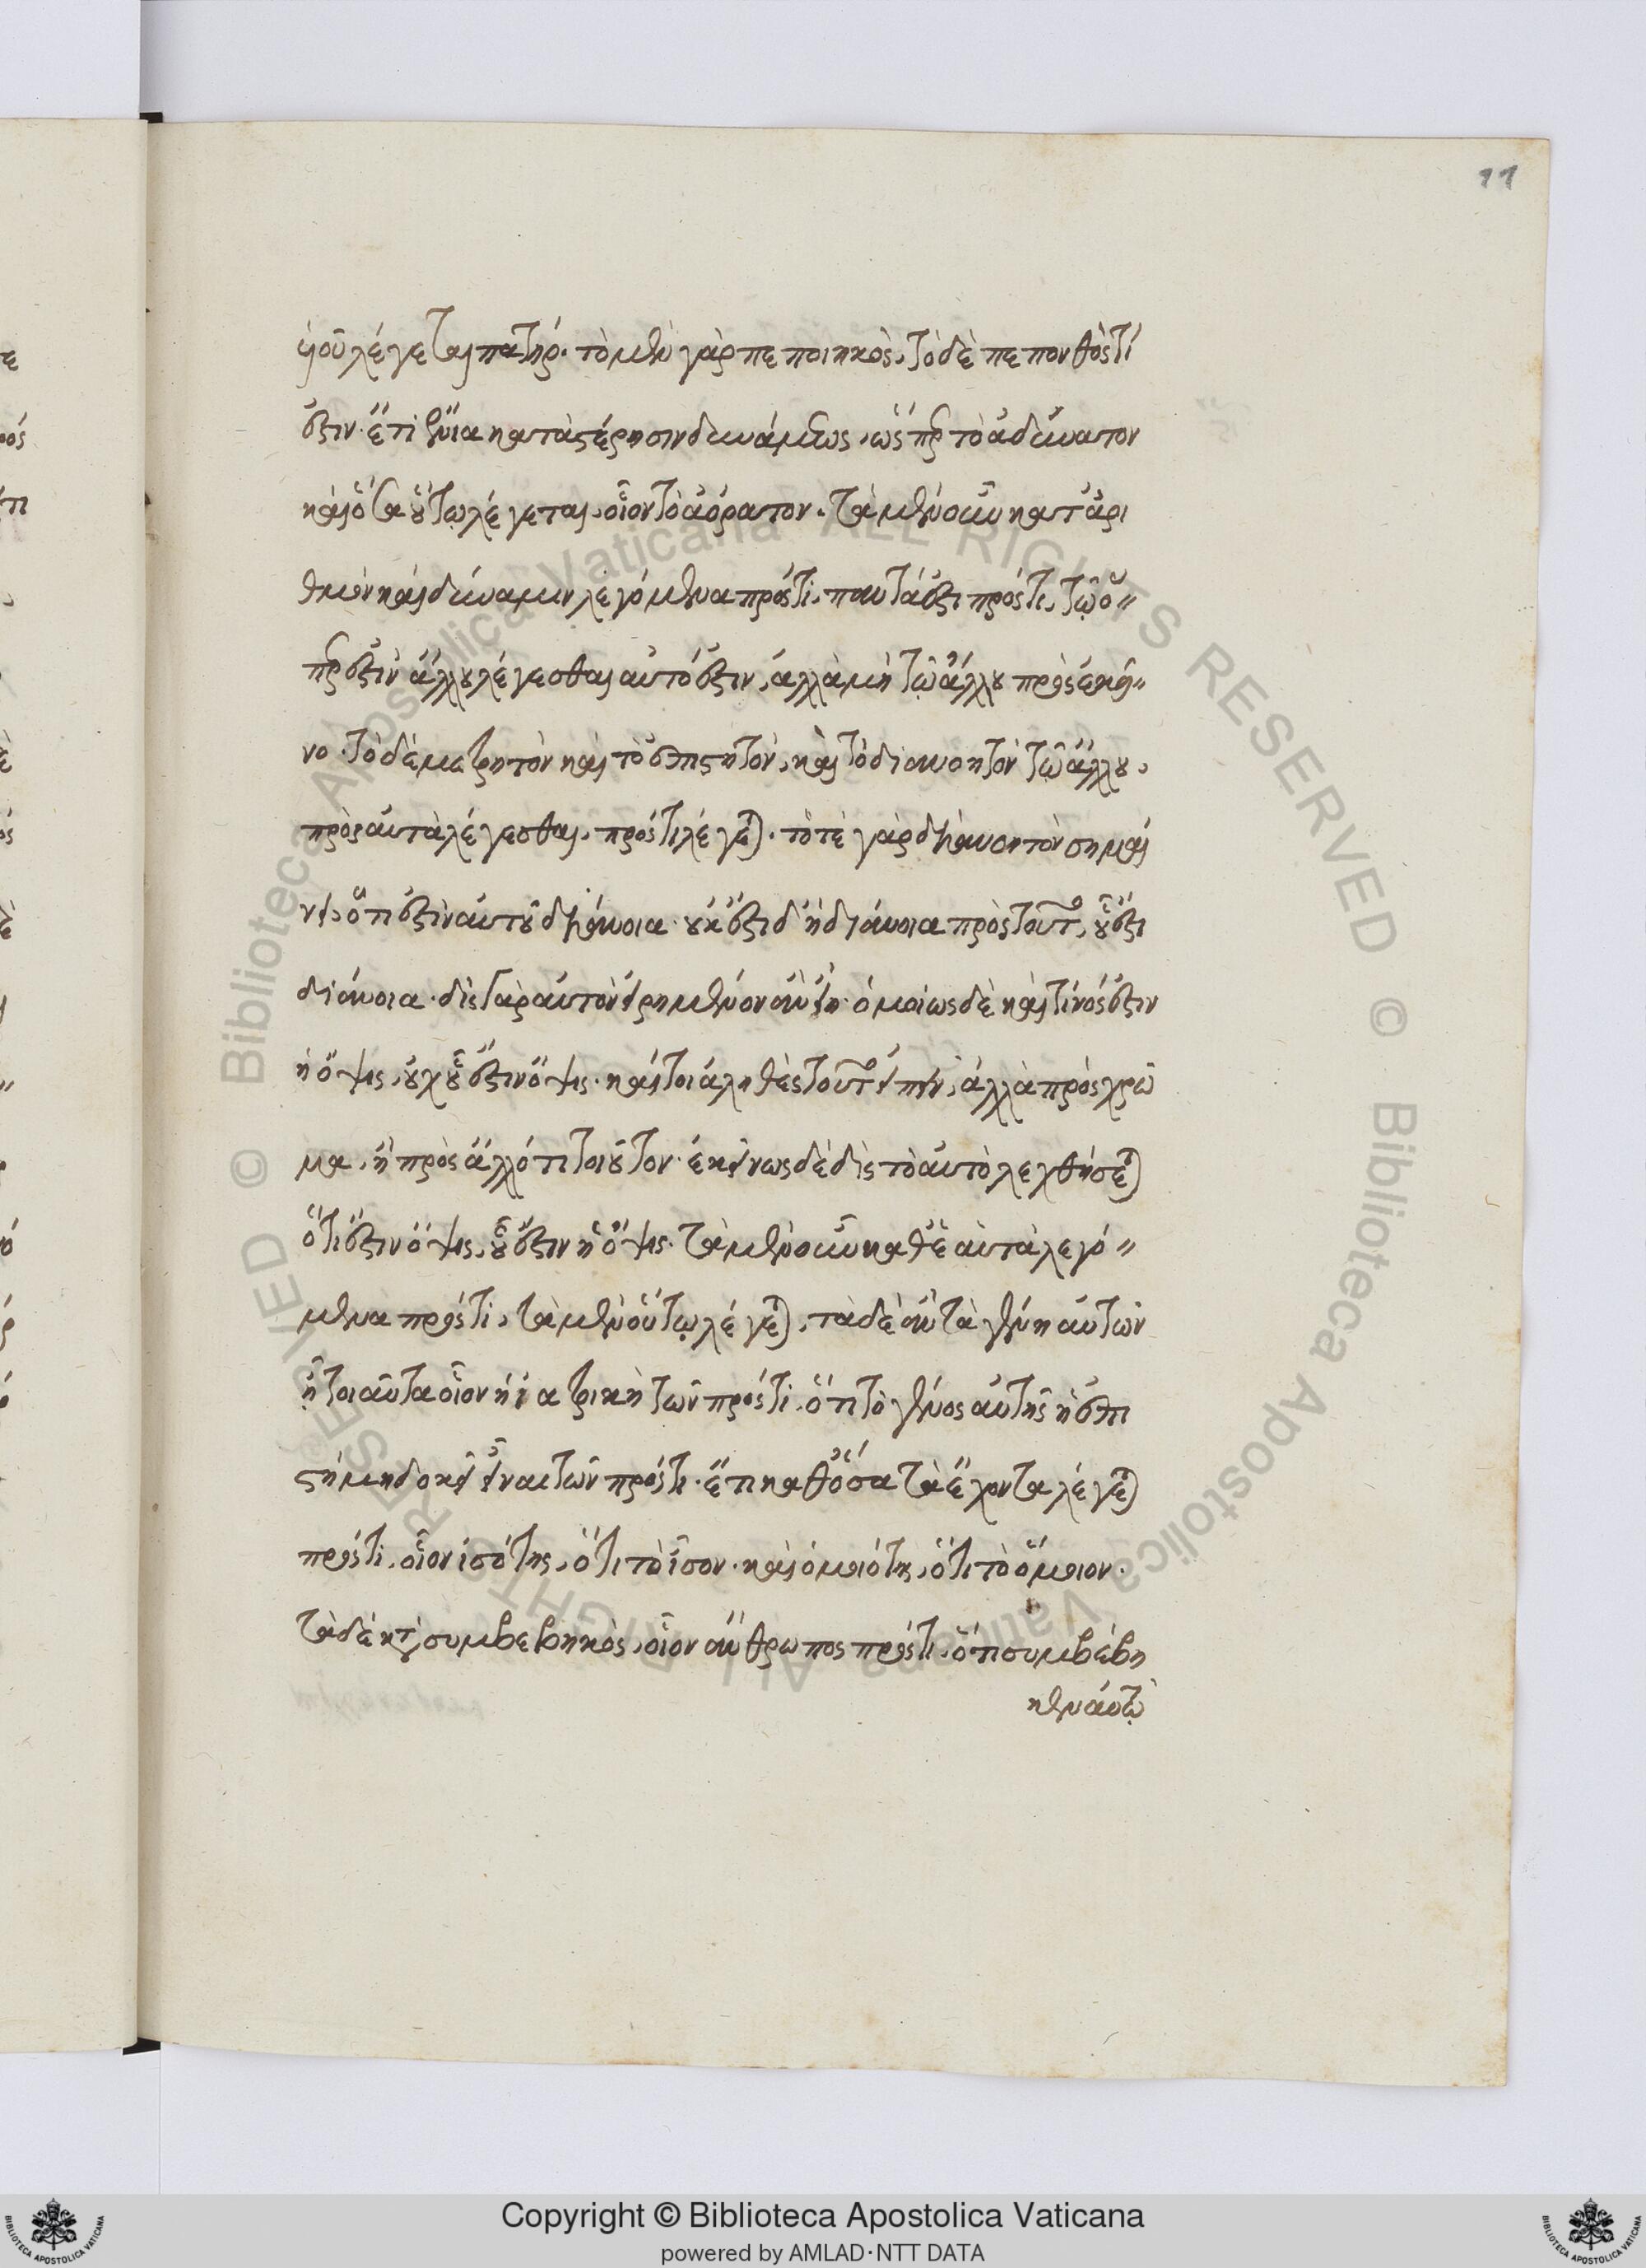 11
υἱοῦ λέγεται πατήρ. τὸ μὲν γὰρ πεποιηκὸς, τὸ δὲ πεπονθός τί
ἐστιν. ἔτι ἔνια κατὰ στέρησιν δυνάμεως, ὥσπερ τὸ ἀδύνατον
καὶ ὅσα οὕτω λέγεται, οἷον τὸ ἀόρατον. τὰ μὲν οὖν κατ' ἀρι
θμὸν καὶ δύναμιν λεγόμενα πρός τι, πάντά ἐστι πρός τι, τῷ ὅ
περ ἐστὶν ἄλλου λέγεσθαι αὐτό ἐστιν, ἀλλὰ μὴ τῷ ἄλλου πρὸς ἐκεῖ
νο. τὸ δὲ μετρητὸν καὶ τὸ ἐπιστητὸν, καὶ τὸ διανοητὸν τῷ ἄλλου,
πρὸς αὐτὰ λέγεσθαι, πρός τι λέγεται. τό τε γὰρ διανοητὸν σημαί
νει, ὅτι ἐστὶν αὐτοῦ διάνοια. οὐκ ἔστι δ' ἡ διάνοια πρὸς τοῦτο, οὗ ἐστι
διάνοια. δὶς γὰρ αὐτὸν εἰρημένον ἂν εἴη. ὁμοίως δὲ καὶ τινός ἐστιν
ἡ ὄψις, οὐχ οὗ ἐστιν ὄψις. καίτοι ἀληθὲς τοῦτο εἰπεῖν, ἀλλὰ πρὸς χρῶ
μα, ἢ πρὸς ἄλλό τι τοιοῦτον. ἐκείνως δὲ δὶς τὸ αὐτὸ λεχθήσεται
ὅτι ἐστὶν ὄψις, οὗ ἐστιν ἡ ὄψις. τὰ μὲν οὖν καθ' ἑαυτὰ λεγό
μενα πρός τι, τὰ μὲν οὕτω λέγεται, τὰ δὲ ἂν τὰ γένη αὐτῶν
ᾖ τοιαῦτα οἷον ἡ ἰατρικὴ τῶν πρός τι, ὅτι τὸ γένος αὐτῆς ἡ ἐπι
στήμη δοκεῖ εἶναι τῶν πρός τι. ἔτι καθ' ὅσα τὰ ἔχοντα λέγεται
πρός τι, οἷον ἰσότης, ὅτι τὸ ἴσον. καὶ ὁμοιότης, ὅτι τὸ ὅμοιον.
τὰ δὲ κατὰ συμβεβηκὸς, οἷον ἄνθρωπος πρός τι, ὅτι συμβέβη
κεν αὐτῷ
Copyright © Biblioteca Apostolica Vaticana
powered by AMLAD·NTT DATA
© Biblioteca Apostolica Vaticana ALL RIGHTS RESERVED © Biblioteca Apostolica Vaticana ALL RIGHTS RESERVED